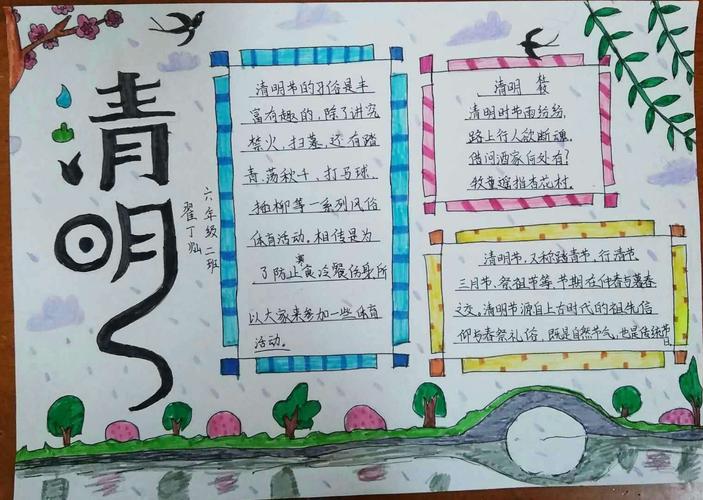 清明
六年级二班
翟丁灿
清明节的习俗是丰
富有趣的,除了讲究
禁火,扫墓,还有踏
青、荡秋千、打马球、
插柳等一系列风俗
体育活动。相传是为
了防止寒冷餐伤身,所
以大家来参加一些体育
活动。
清明 杜牧
清明时节雨纷纷,
路上行人欲断魂,
借问酒家何处有?
牧童遥指杏花村。
清明节,又称踏青节,行清节,
三月节,祭祖节等,节期在仲春与暮春
之交,清明节源自上古时代的祖先信
仰与春祭礼俗,既是自然节气,也是传统节
日